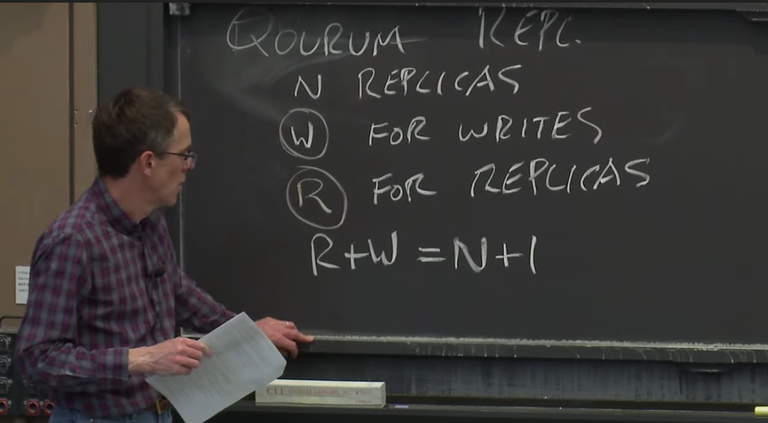 QOURUM REPL.
N REPLICAS
W FOR WRITES
R FOR REPLICAS
R+W=N+1